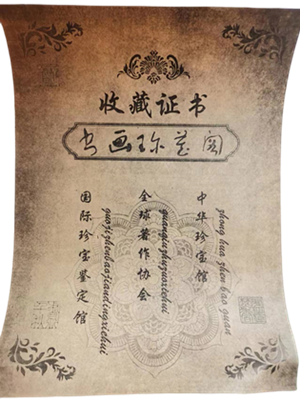 收藏证书
书画珍藏阁
中华珍宝馆
zhong hua zhen bao guan
全球著作协会
quanqiuzhuzuoxiehui
国际珍宝鉴定馆
guojizhenbaojiandingxiehui